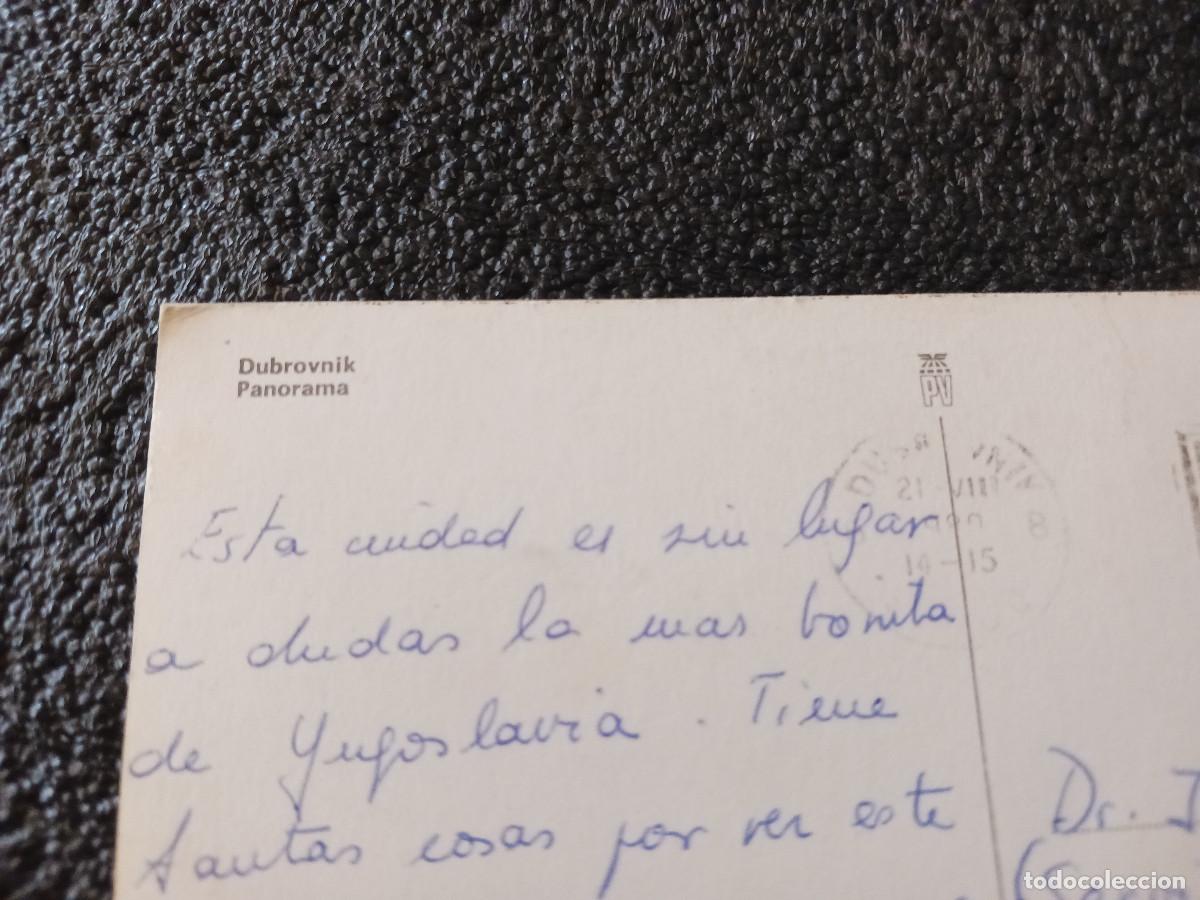 Dubrovnik
Panorama
PV
21 VIII
8
14-15
Esta ciudad es sin lugar
a dudas la mas bonita
de Yugoslavia. Tiene
tantas cosas por ver este
Dr. J
todocoleccion